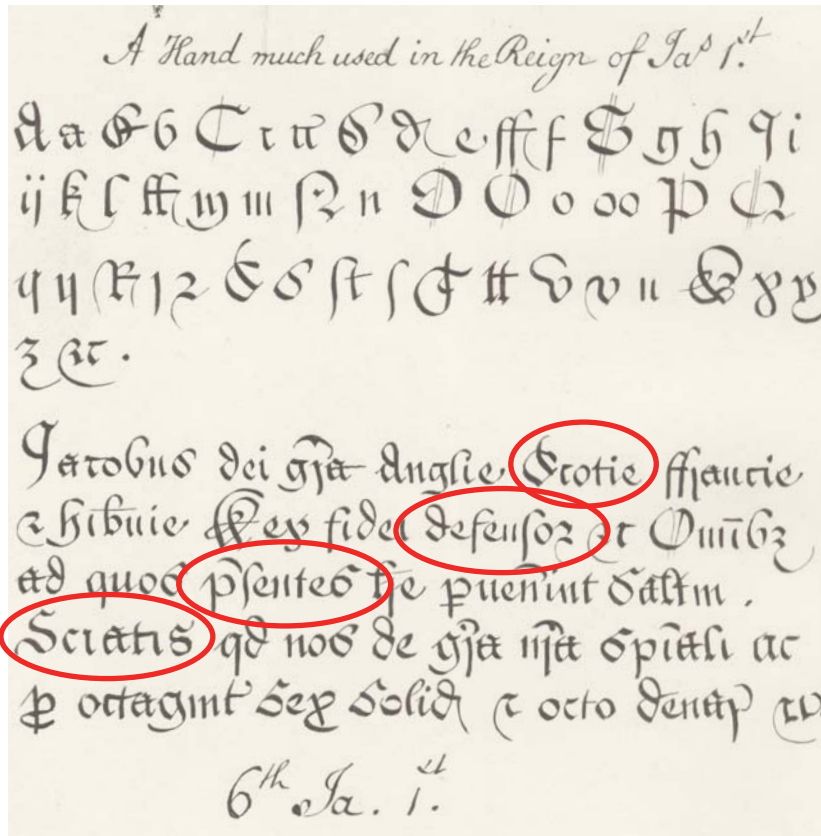 A Hand much used in the Reign of Jas 1.st
A a B b C c cc D d e ff f G g h I i
ij k l ff m m N n O O o oo P Q
q q R r 2 S s st s T tt v v u W x y
z &c .
Jacobus dei gra Anglie Scotie ffrancie
& hib̄nie Rex fidei defensor et Omīb3
ad quos p̄sentes lre puen̄int Saltm .
Sciatis qd nos de gra nra sp̄iali ac
p octagint Sex Solid & octo denar
6th Ja . 1.st